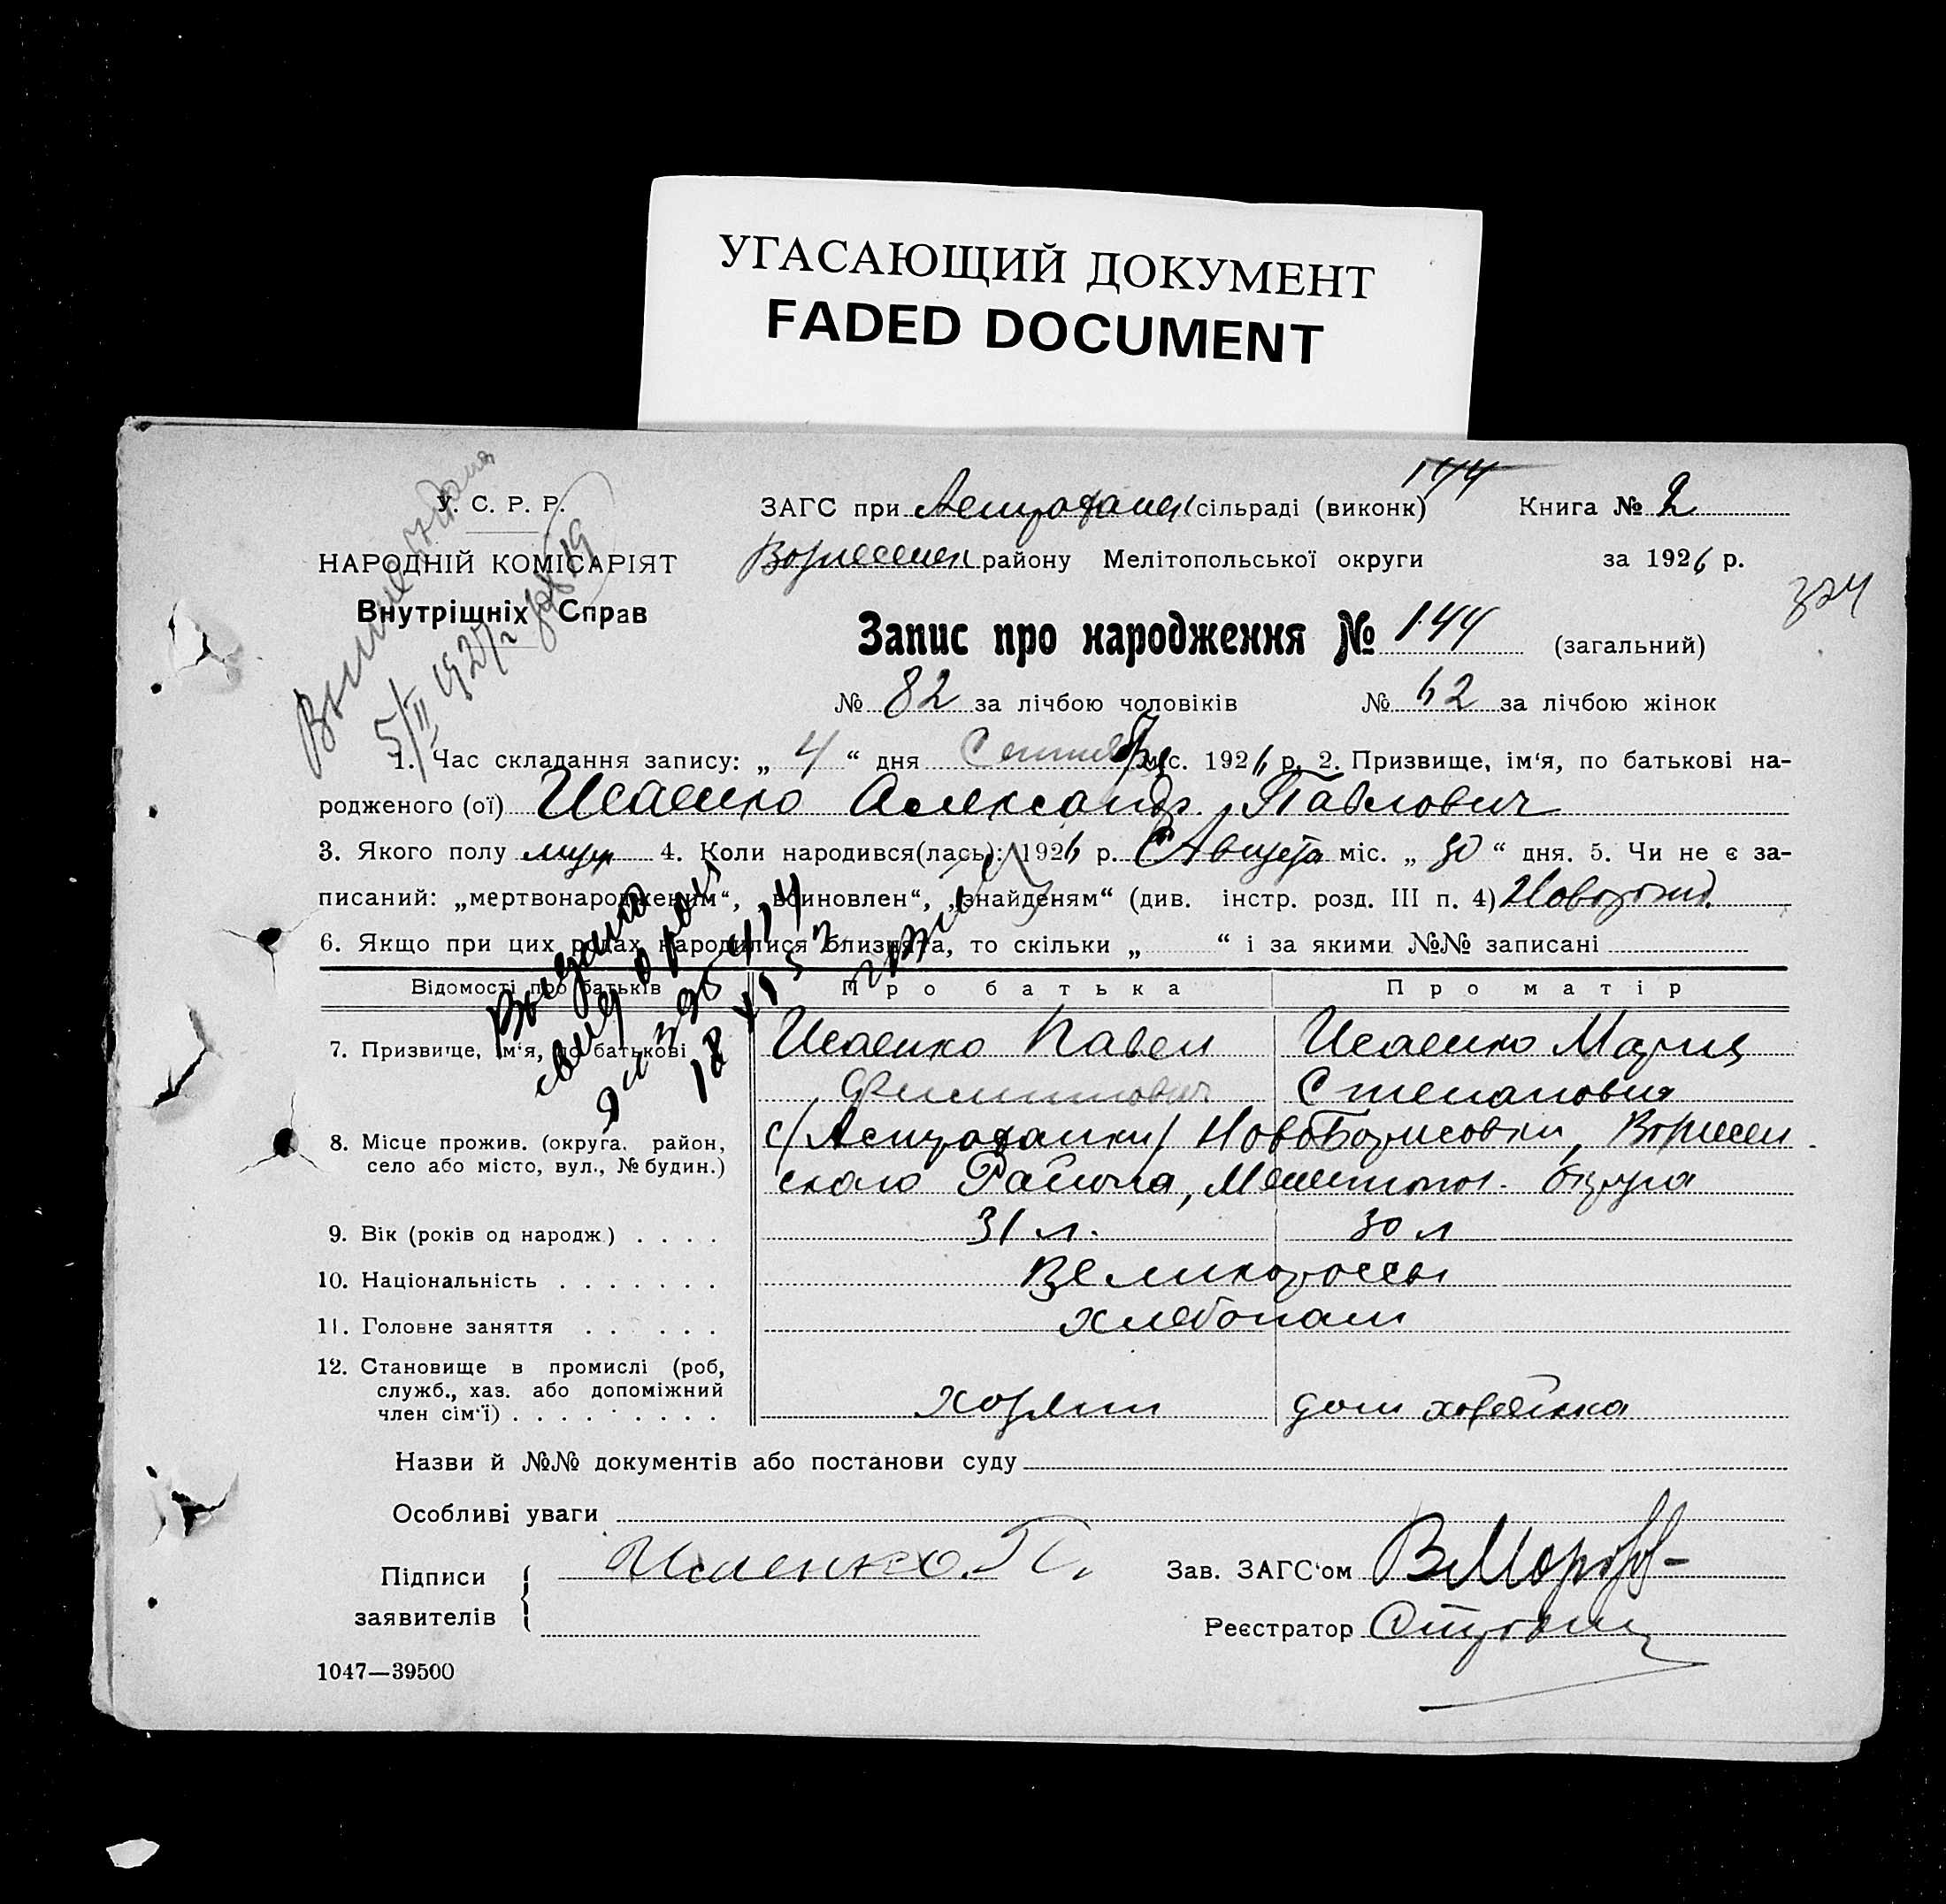 УГАСАЮЩИЙ ДОКУМЕНТ
FADED DOCUMENT
144
У. С. Р. Р.
НАРОДНІЙ КОМІСАРІЯТ
Внутрішніх Справ
ЗАГС при Астрахан сільраді (виконк) Книга № 2
Вознесен району Мелітопольської округи за 1926 р.
324
Запис про народження № 144 (загальний)
№ 82 за лічбою чоловіків № 62 за лічбою жінок
1. Час складання запису: „ 4 “ дня Сентября міс. 1926 р. 2. Призвище, ім‘я, по батькові на-
родженого (ої) Исаенко Александр Павлович
3. Якого полу муж 4. Коли народився(лась): 1926 р. Августа міс. „ 30 “ дня. 5. Чи не є за-
писаний: „мертвонародженим“, „всиновлен“, „знайденям“ (див. інстр. розд. III п. 4) Новорожд.
6. Якщо при цих родах народилися близнята, то скільки „ “ і за якими №№ записані
Відомості про батьків Про батька Про матір
7. Призвище, ім‘я, по батькові Исаенко Павел Исаенко Мария
Филиппович Степановна
8. Місце прожив. (округа, район, с/Астраханки/ НовоБорисовки, Вознесен
село або місто, вул., № будин.) ского Района, Мелитопол. Округа
9. Вік (років од народж) . . . . 31 л. 30 л
10. Національність . . . . . . . Великороссы
11. Головне заняття . . . . . . хлебопаш
12. Становище в промислі (роб,
служб., хаз. або допоміжний
член сім‘ї) . . . . . . . . . хозяин дом хозяйка
Назви й №№ документів або постанови суду
Особливі уваги
Підписи Исаенко. П. Зав. ЗАГС‘ом
заявителів Реєстратор
1047—39500
Выпись выдана
5/II 1927 г
Выдано
свид о рож
18